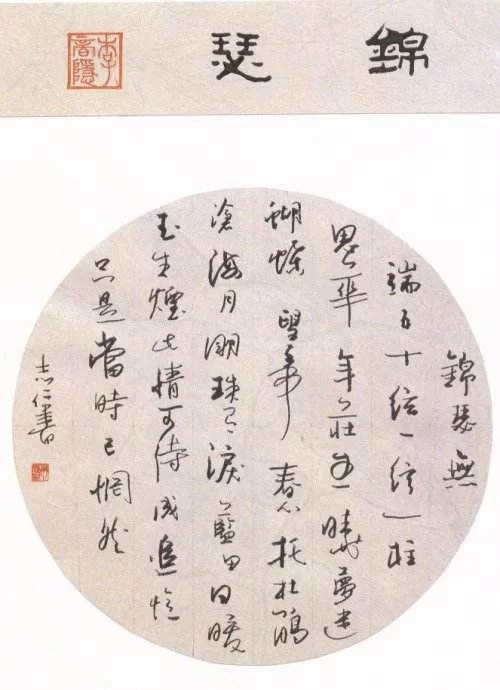 錦瑟
李商隱
錦瑟無
端五十絃一絃一柱
思華年莊生曉夢迷
蝴蝶望帝春心托杜鵑
滄海月明珠有淚藍田日暖
玉生煙此情可待成追憶
只是當時已惘然
志仁書